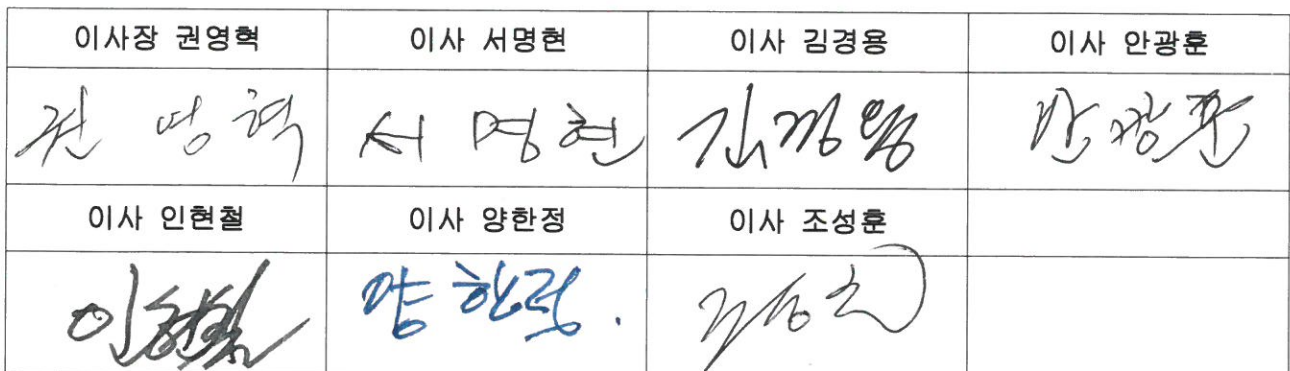 이사장 권영혁
이사 서명현
이사 김경용
이사 안광훈
권 영 혁
서 명 현
김경용
안광훈
이사 인현철
이사 양한정
이사 조성훈
인현철
양 한정.
조성훈